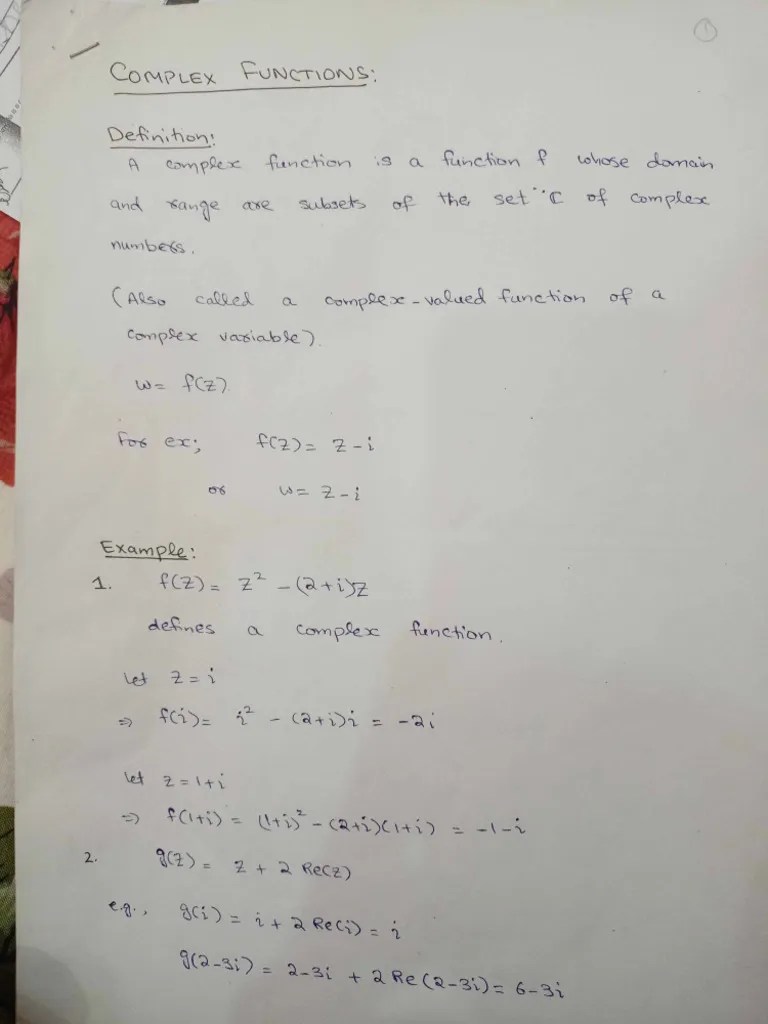 1
COMPLEX FUNCTIONS:
Definition:
A complex function is a function f whose domain
and range are subsets of the set ℂ of complex
numbers.
(Also called a complex-valued function of a
complex variable).
w = f(z)
For ex; f(z) = z - i
or w = z - i
Example:
1. f(z) = z² - (2+i)z
defines a complex function.
let z = i
⇒ f(i) = i² - (2+i)i = -2i
let z = 1+i
⇒ f(1+i) = (1+i)² - (2+i)(1+i) = -1-i
2. g(z) = z + 2 Re(z)
e.g., g(i) = i + 2 Re(i) = i
g(2-3i) = 2-3i + 2 Re(2-3i) = 6-3i